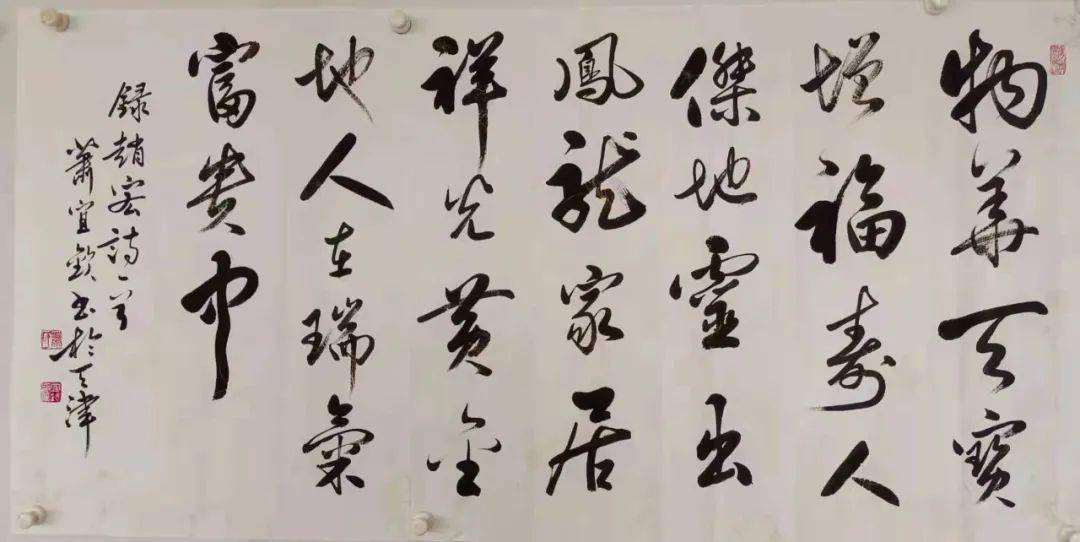 物華天寶
增福壽人
傑地靈出
鳳龍家居
祥光黃金
地人在瑞氣
富貴中
錄趙宏詩一首
蕭宜欽书於天津